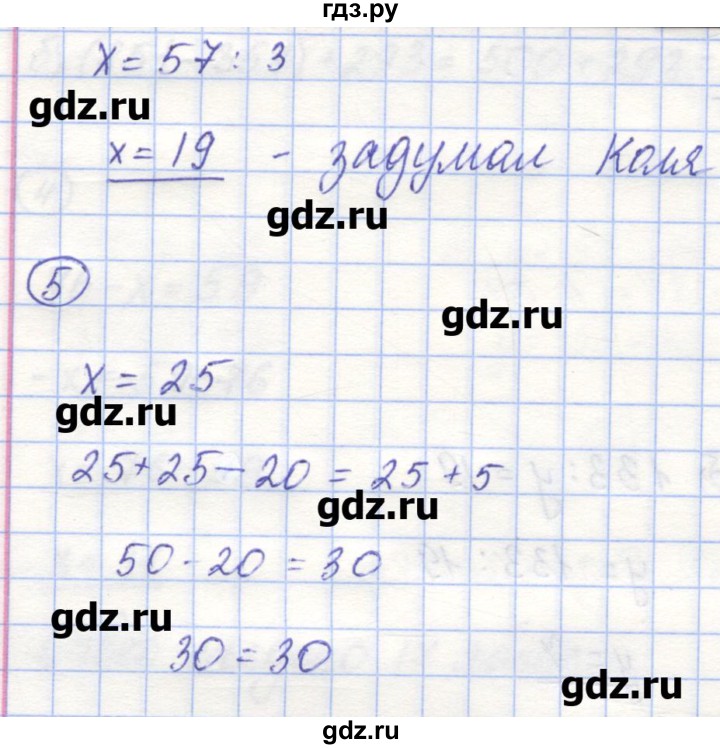 гдз.ру
x = 57 : 3
gdz.ru
x = 19 - задумал Коля
gdz.ru
5
gdz.ru
x = 25
gdz.ru
25 + 25 - 20 = 25 + 5
gdz.ru
50 - 20 = 30
gdz.ru
30 = 30
gdz.ru
gdz.ru